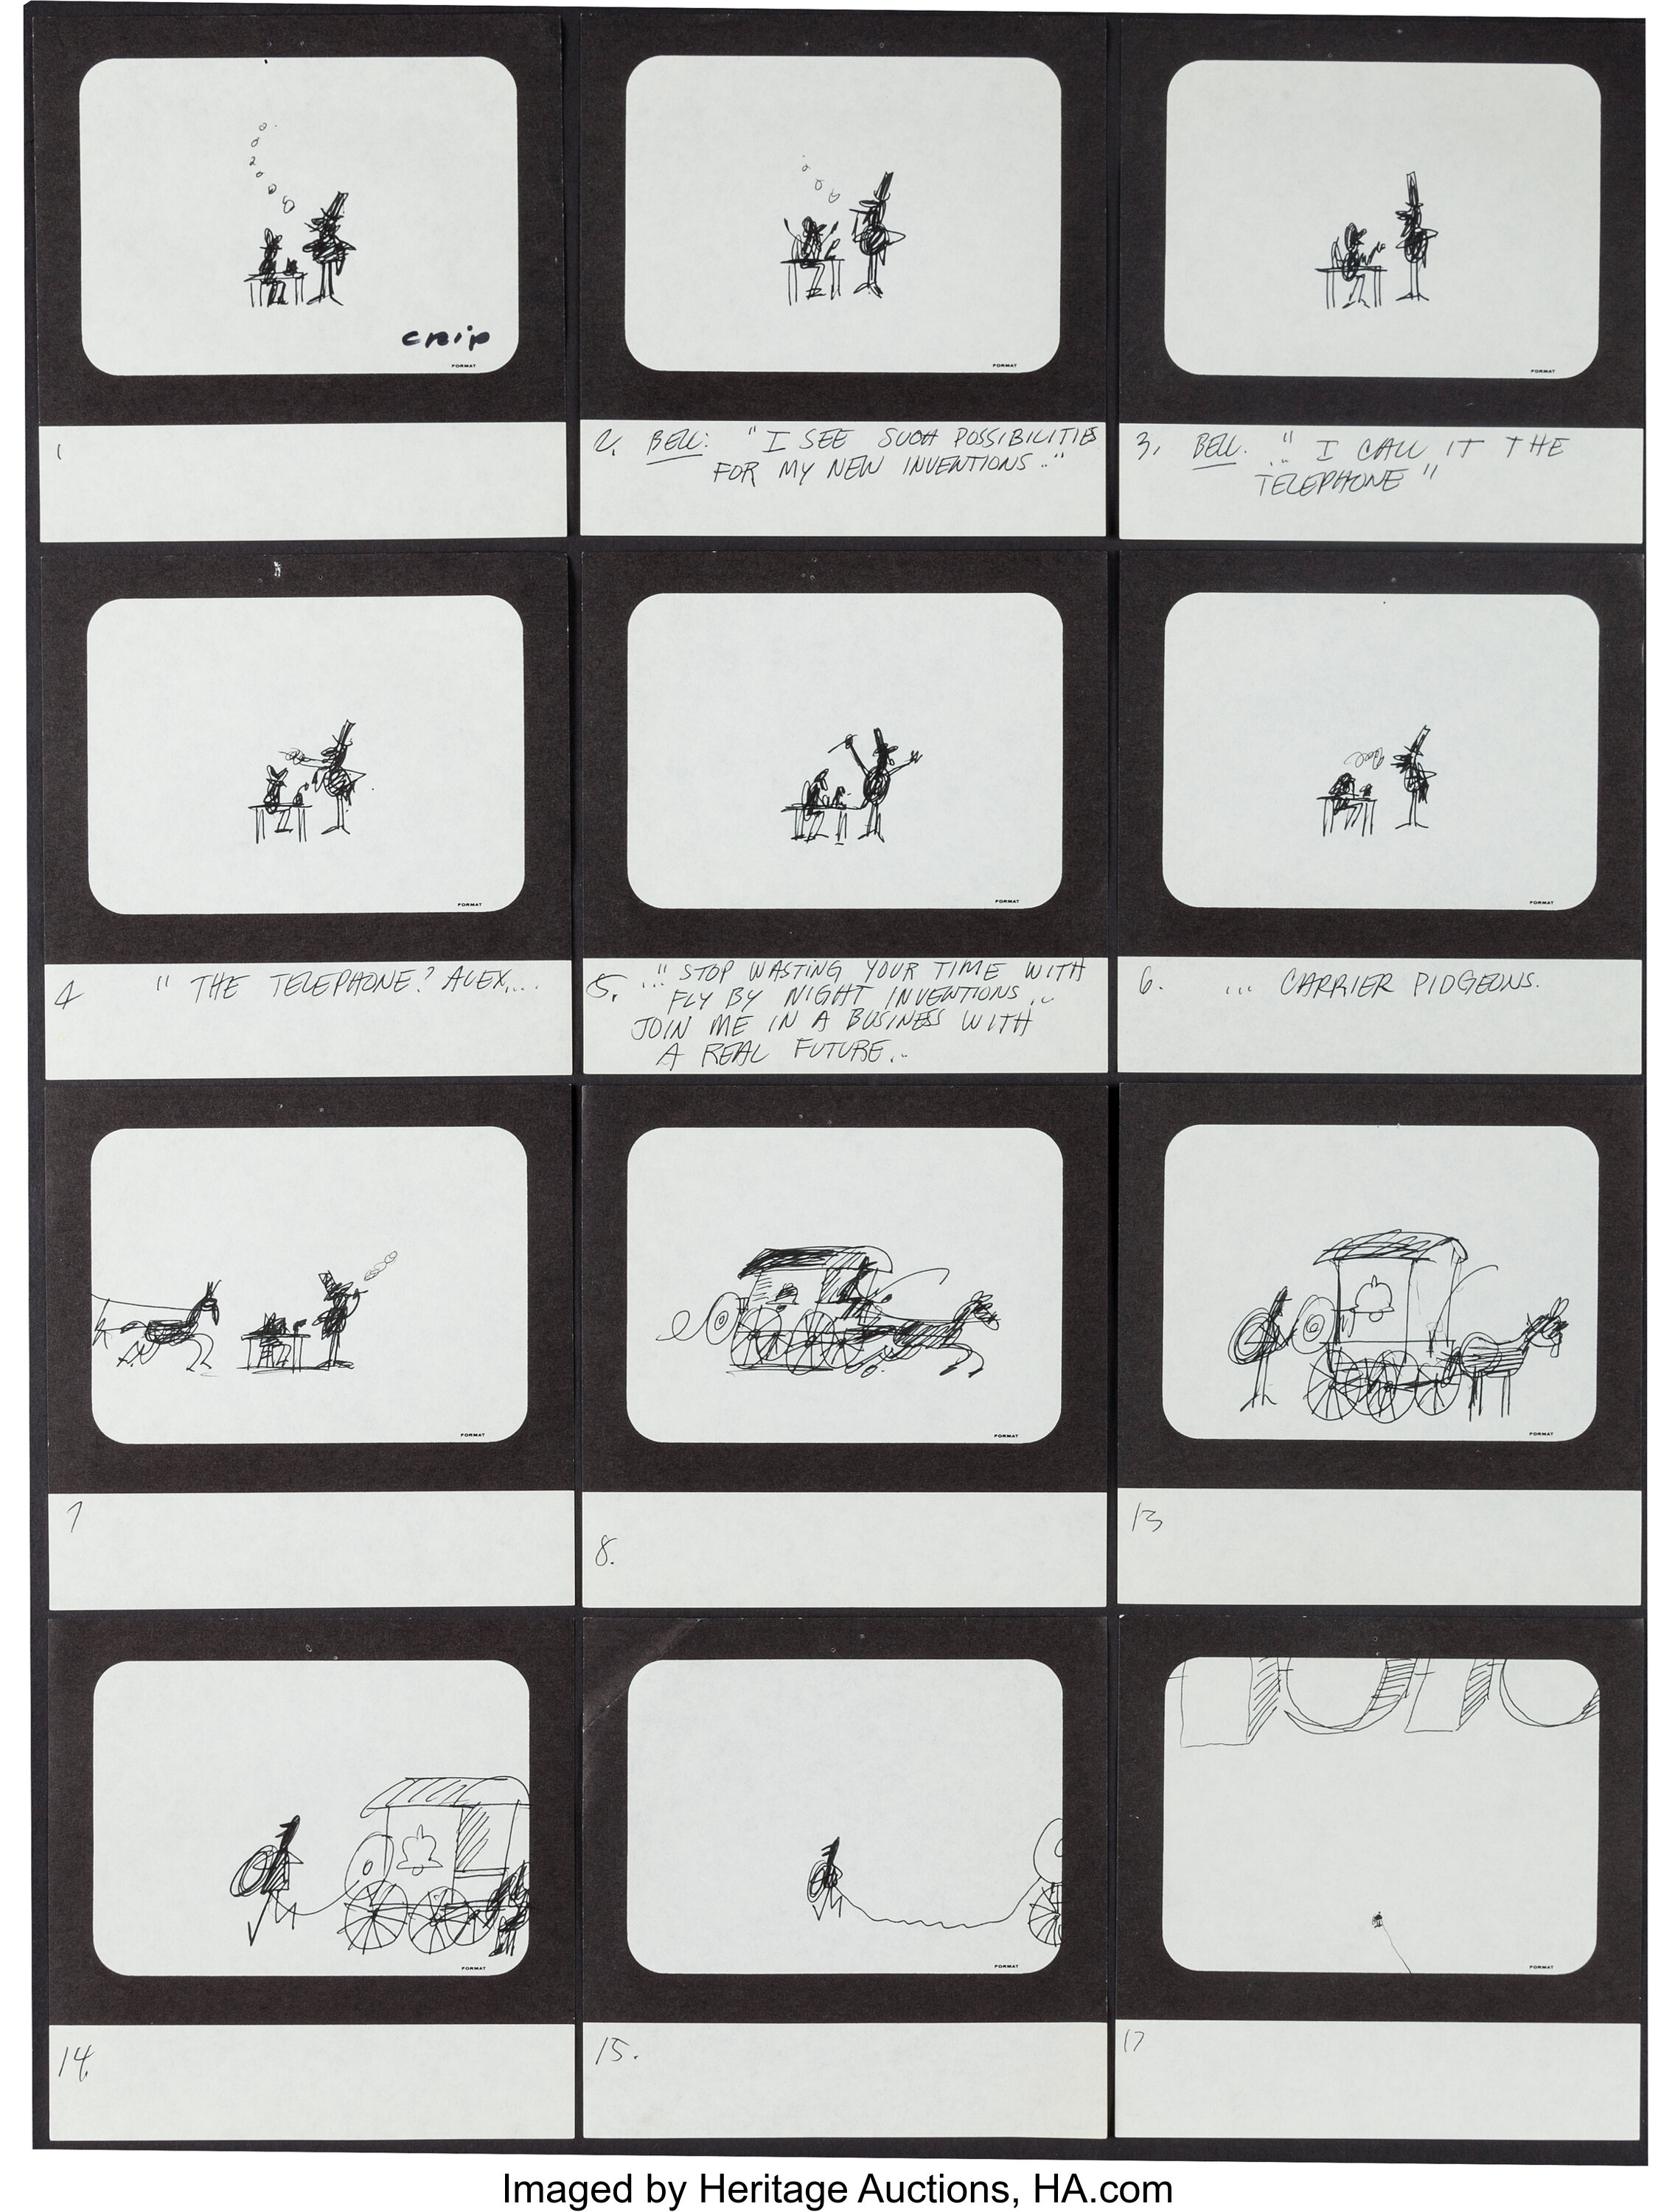 crip
FORMAT
FORMAT
FORMAT
1
2. BELL: "I SEE SUCH POSSIBILITIES
FOR MY NEW INVENTIONS.."
3. BELL. "... I CALL IT THE
TELEPHONE"
FORMAT
FORMAT
FORMAT
4 "THE TELEPHONE? ALEX....
5. ..."STOP WASTING YOUR TIME WITH
FLY BY NIGHT INVENTIONS...
JOIN ME IN A BUSINESS WITH
A REAL FUTURE...
6. ... CARRIER PIDGEONS.
FORMAT
FORMAT
FORMAT
7
8.
13
FORMAT
FORMAT
FORMAT
14.
15.
17
Imaged by Heritage Auctions, HA.com